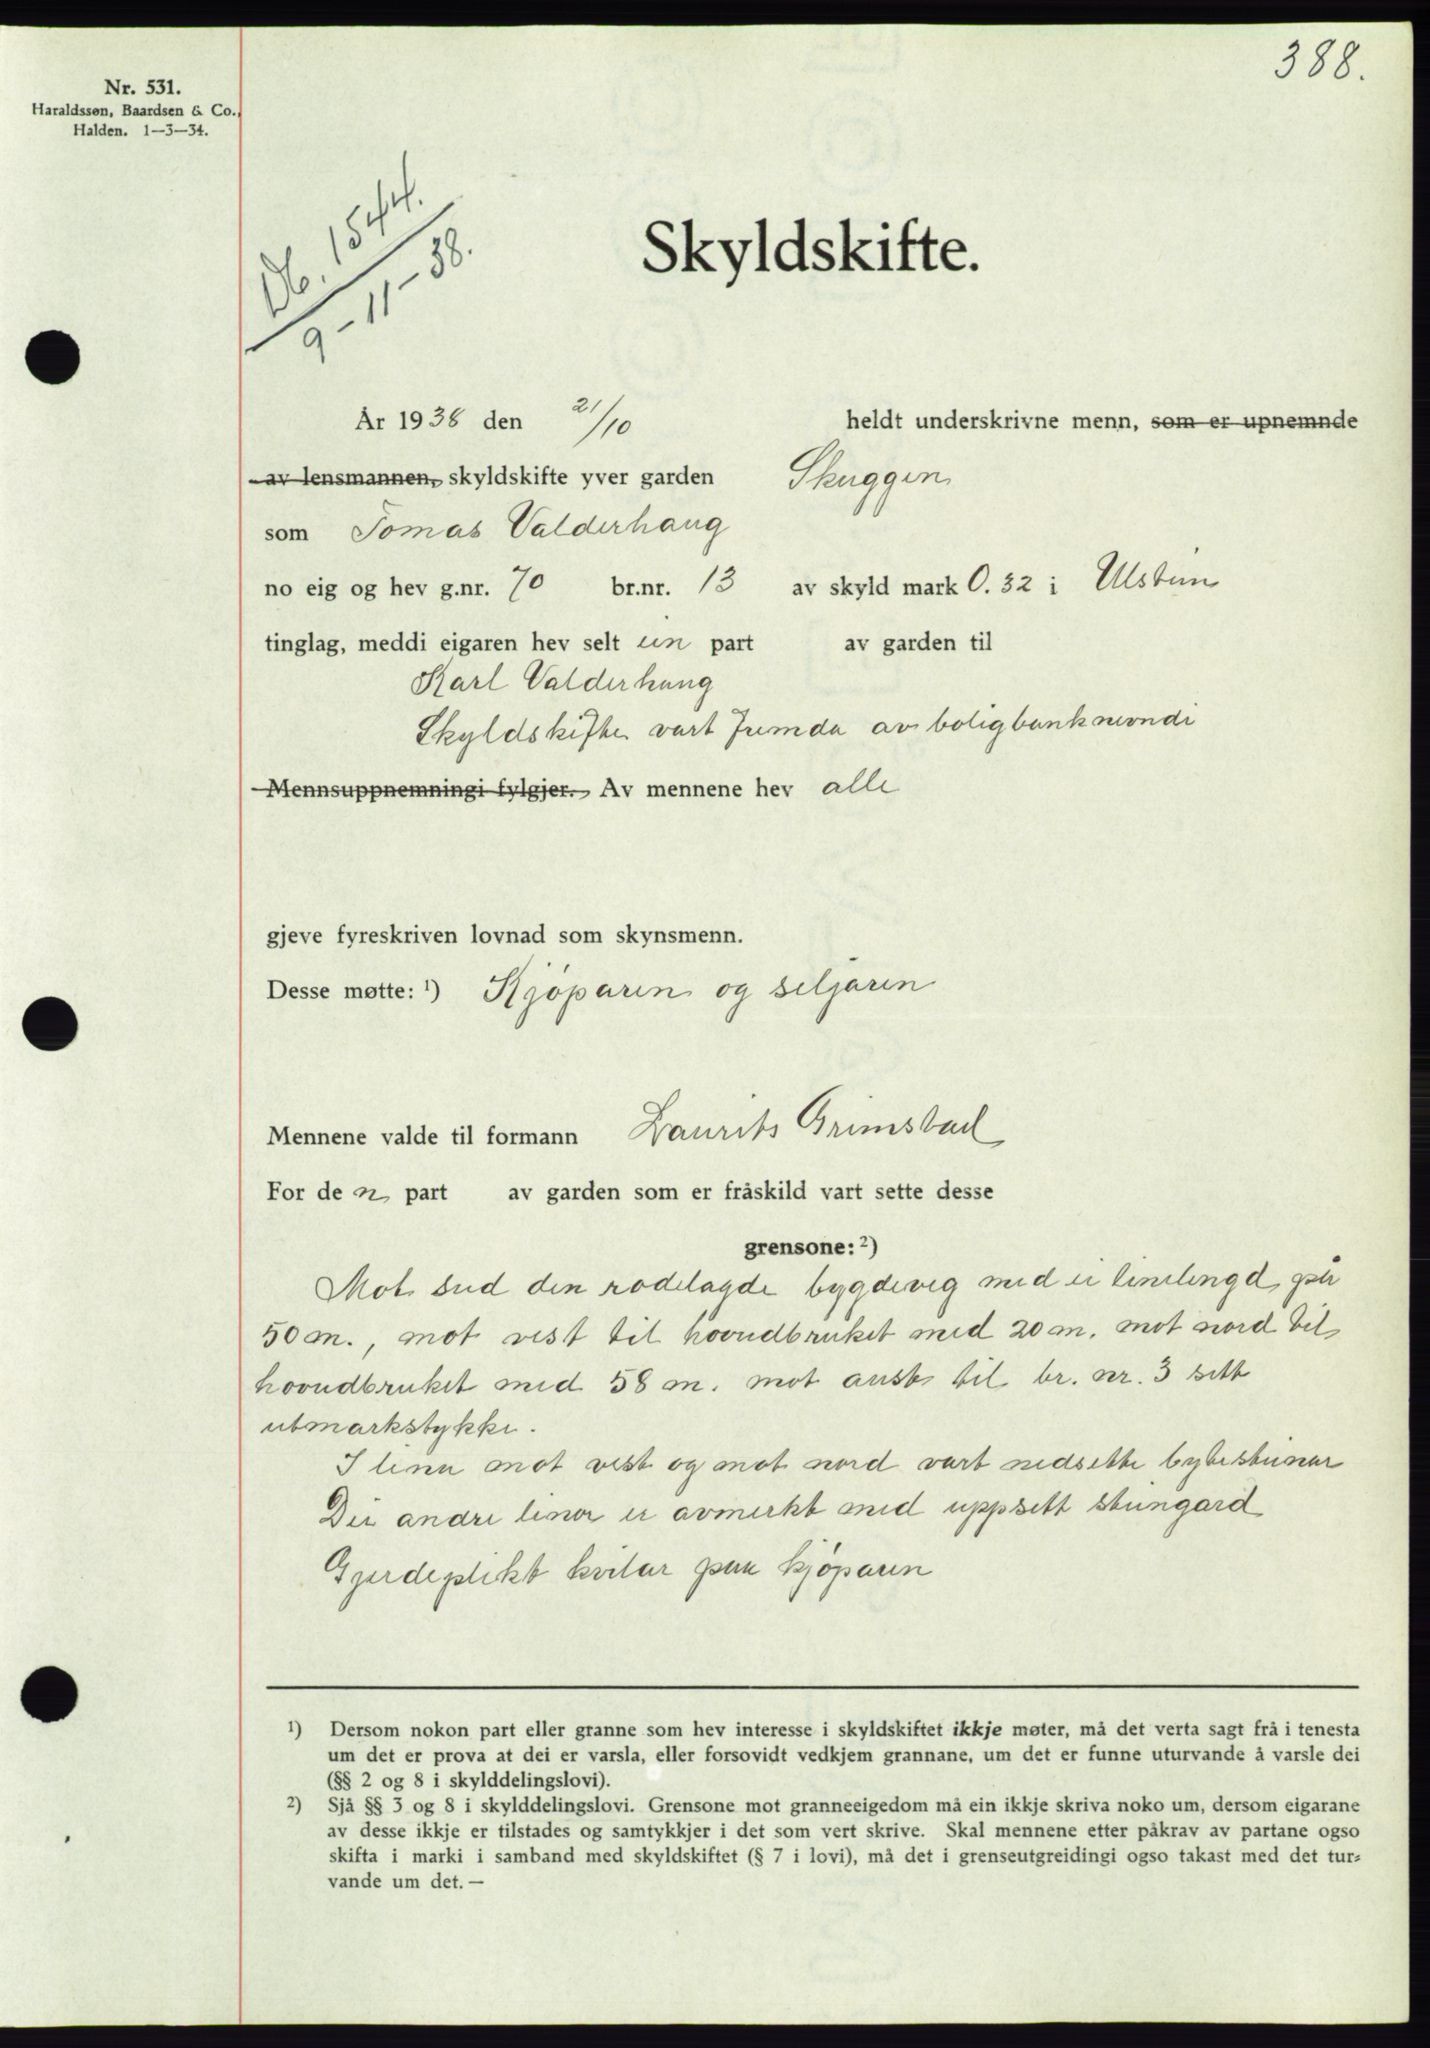 388.
Nr. 531.
Haraldssøn, Baardsen & Co.,
Halden. 1—3—34.
Db. 1544.
9-11-38.
Skyldskifte.
År 1938 den 21/10 heldt underskrivne menn, som er upnemnde
av lensmannen, skyldskifte yver garden Skuggen
som Tomas Valderhaug
no eig og hev g.nr. 70 br.nr. 13 av skyld mark 0.32 i Ulstein
tinglag, meddi eigaren hev selt ein part av garden til
Karl Valderhaug
Skyldskifte vart fremda av boligbanknevndi
Mennsuppnemningi fylgjer. Av mennene hev alle
gjeve fyreskriven lovnad som skynsmenn.
Desse møtte: ¹) Kjöparen og seljaren
Mennene valde til formann Laurits Grimstad
For den part av garden som er fråskild vart sette desse
grensone: ²)
Mot sud den rodelagde bygdeveg med ei linelengd på
50 m., mot vest til hovudbruket med 20 m. mot nord til
hovudbruket med 58 m. mot aust til br. nr. 3 sitt
utmarkstykke.
I lina mot vest og mot nord vart nedsette bytesteinar
Dei andre linor er avmerkt med uppsett steingard
Gjerdeplikt kvilar paa kjöparen
¹) Dersom nokon part eller granne som hev interesse i skyldskiftet ikkje møter, må det verta sagt frå i tenesta
um det er prova at dei er varsla, eller forsovidt vedkjem grannane, um det er funne uturvande å varsle dei
(§§ 2 og 8 i skylddelingslovi).
²) Sjå §§ 3 og 8 i skylddelingslovi. Grensone mot granneeigedom må ein ikkje skriva noko um, dersom eigarane
av desse ikkje er tilstades og samtykkjer i det som vert skrive. Skal mennene etter påkrav av partane ogso
skifta i marki i samband med skyldskiftet (§ 7 i lovi), må det i grenseutgreidingi ogso takast med det tur-
vande um det. —